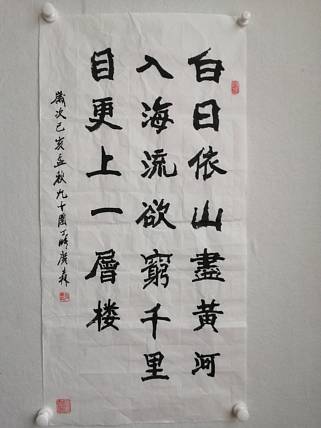 白日依山盡黃河
入海流欲窮千里
目更上一層楼
歲次己亥孟秋九十園丁